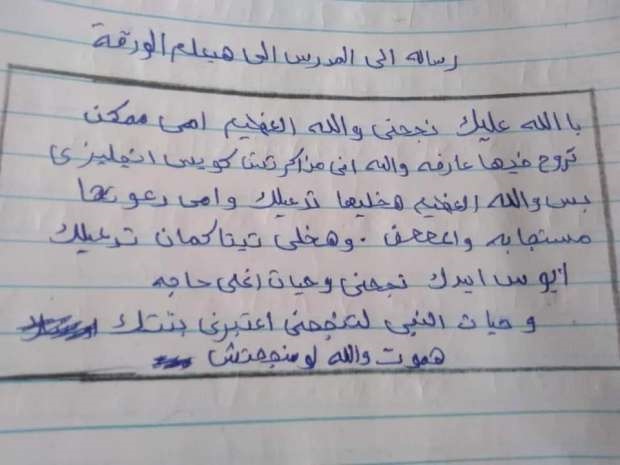 رساله الى المدرس الى هيعلم الورقة
با الله عليك نجحنى والله العظيم امى ممكن
تروح فيها عارفه والله انى مذاكرتش كويس انجليزى
بس والله العظيم هخليها تدعيلك وامى دعوتها
مستجابه وهخلى تيتا كمان تدعيلك
ابوس ايدك نجحنى وحيات اغلى حاجه
وحيات النبى لتنجحنى اعتبرنى بنتك
هموت والله لو منجحتش